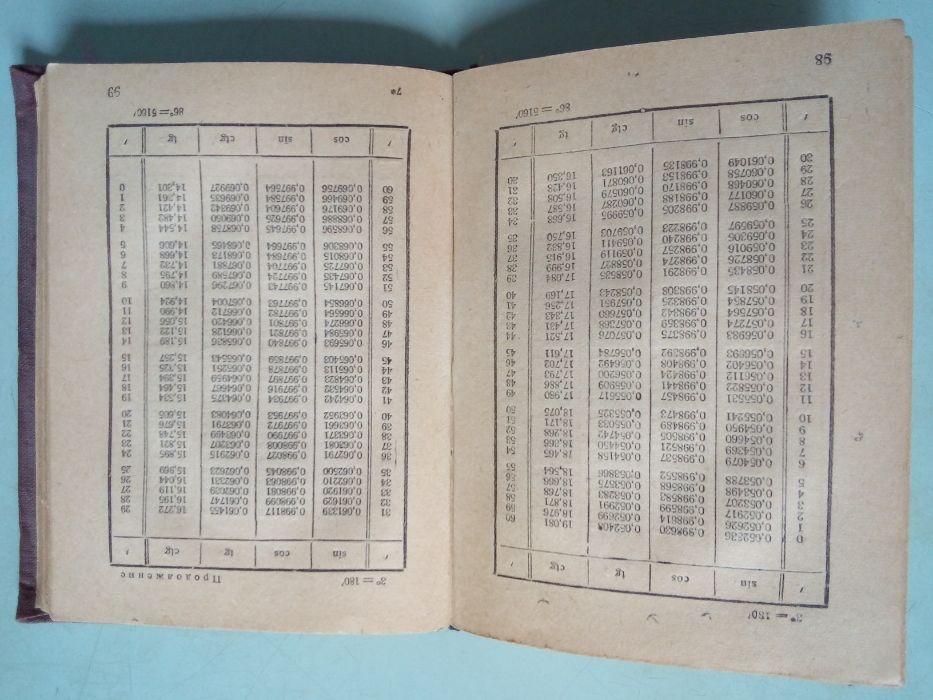 3° = 180′
′ sin cos tg ctg
0 0,052336 0,998630 0,052408 19,081 60
1 0,052626 0,998614 0,052699 18,976 59
2 0,052917 0,998599 0,052991 18,871 58
3 0,053207 0,998583 0,053283 18,768 57
4 0,053498 0,998568 0,053575 18,666 56
5 0,053788 0,998552 0,053866 18,564 55
6 0,054079 0,998537 0,054158 18,465 54
7 0,054369 0,998521 0,054450 18,366 53
8 0,054660 0,998505 0,054742 18,268 52
9 0,054950 0,998489 0,055033 18,171 51
10 0,055241 0,998473 0,055325 18,075 50
11 0,055531 0,998457 0,055617 17,980 49
12 0,055822 0,998441 0,055909 17,886 48
13 0,056112 0,998424 0,056200 17,793 47
14 0,056402 0,998408 0,056492 17,702 46
15 0,056693 0,998392 0,056784 17,611 45
16 0,056983 0,998375 0,057076 17,521 44
17 0,057274 0,998359 0,057368 17,431 43
18 0,057564 0,998342 0,057660 17,343 42
19 0,057854 0,998325 0,057951 17,256 41
20 0,058145 0,998308 0,058243 17,169 40
21 0,058435 0,998291 0,058535 17,084 39
22 0,058726 0,998274 0,058827 16,999 38
23 0,059016 0,998257 0,059119 16,915 37
24 0,059306 0,998240 0,059411 16,832 36
25 0,059597 0,998223 0,059703 16,750 35
26 0,059887 0,998205 0,059995 16,668 34
27 0,060177 0,998188 0,060287 16,587 33
28 0,060468 0,998170 0,060579 16,508 32
29 0,060758 0,998153 0,060871 16,428 31
30 0,061049 0,998135 0,061163 16,350 30
′ cos sin ctg tg
86° = 5160′
98
3° = 180′ Продолжение
′ sin cos tg ctg ′
31 0,061339 0,998117 0,061455 16,272 29
32 0,061629 0,998099 0,061747 16,195 28
33 0,061920 0,998081 0,062039 16,119 27
34 0,062210 0,998063 0,062331 16,044 26
35 0,062500 0,998045 0,062623 15,969 25
36 0,062791 0,998027 0,062915 15,895 24
37 0,063081 0,998008 0,063207 15,821 23
38 0,063371 0,997990 0,063499 15,748 22
39 0,063661 0,997972 0,063791 15,676 21
40 0,063952 0,997953 0,064083 15,605 20
41 0,064242 0,997934 0,064375 15,534 19
42 0,064532 0,997916 0,064667 15,464 18
43 0,064823 0,997897 0,064959 15,394 17
44 0,065113 0,997878 0,065251 15,325 16
45 0,065403 0,997859 0,065543 15,257 15
46 0,065693 0,997840 0,065836 15,189 14
47 0,065984 0,997821 0,066128 15,122 13
48 0,066274 0,997801 0,066420 15,056 12
49 0,066564 0,997782 0,066712 14,990 11
50 0,066854 0,997763 0,067004 14,924 10
51 0,067145 0,997743 0,067296 14,860 9
52 0,067435 0,997724 0,067589 14,795 8
53 0,067725 0,997704 0,067881 14,732 7
54 0,068015 0,997684 0,068173 14,668 6
55 0,068306 0,997664 0,068465 14,606 5
56 0,068596 0,997645 0,068758 14,544 4
57 0,068886 0,997625 0,069050 14,482 3
58 0,069176 0,997604 0,069342 14,421 2
59 0,069466 0,997584 0,069635 14,361 1
60 0,069756 0,997564 0,069927 14,301 0
′ cos sin ctg tg ′
86° = 5160′
7* 99